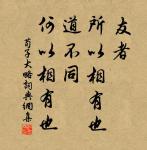 友者
所以相有也
道不同
何以相有也
荀子大略詞典網集